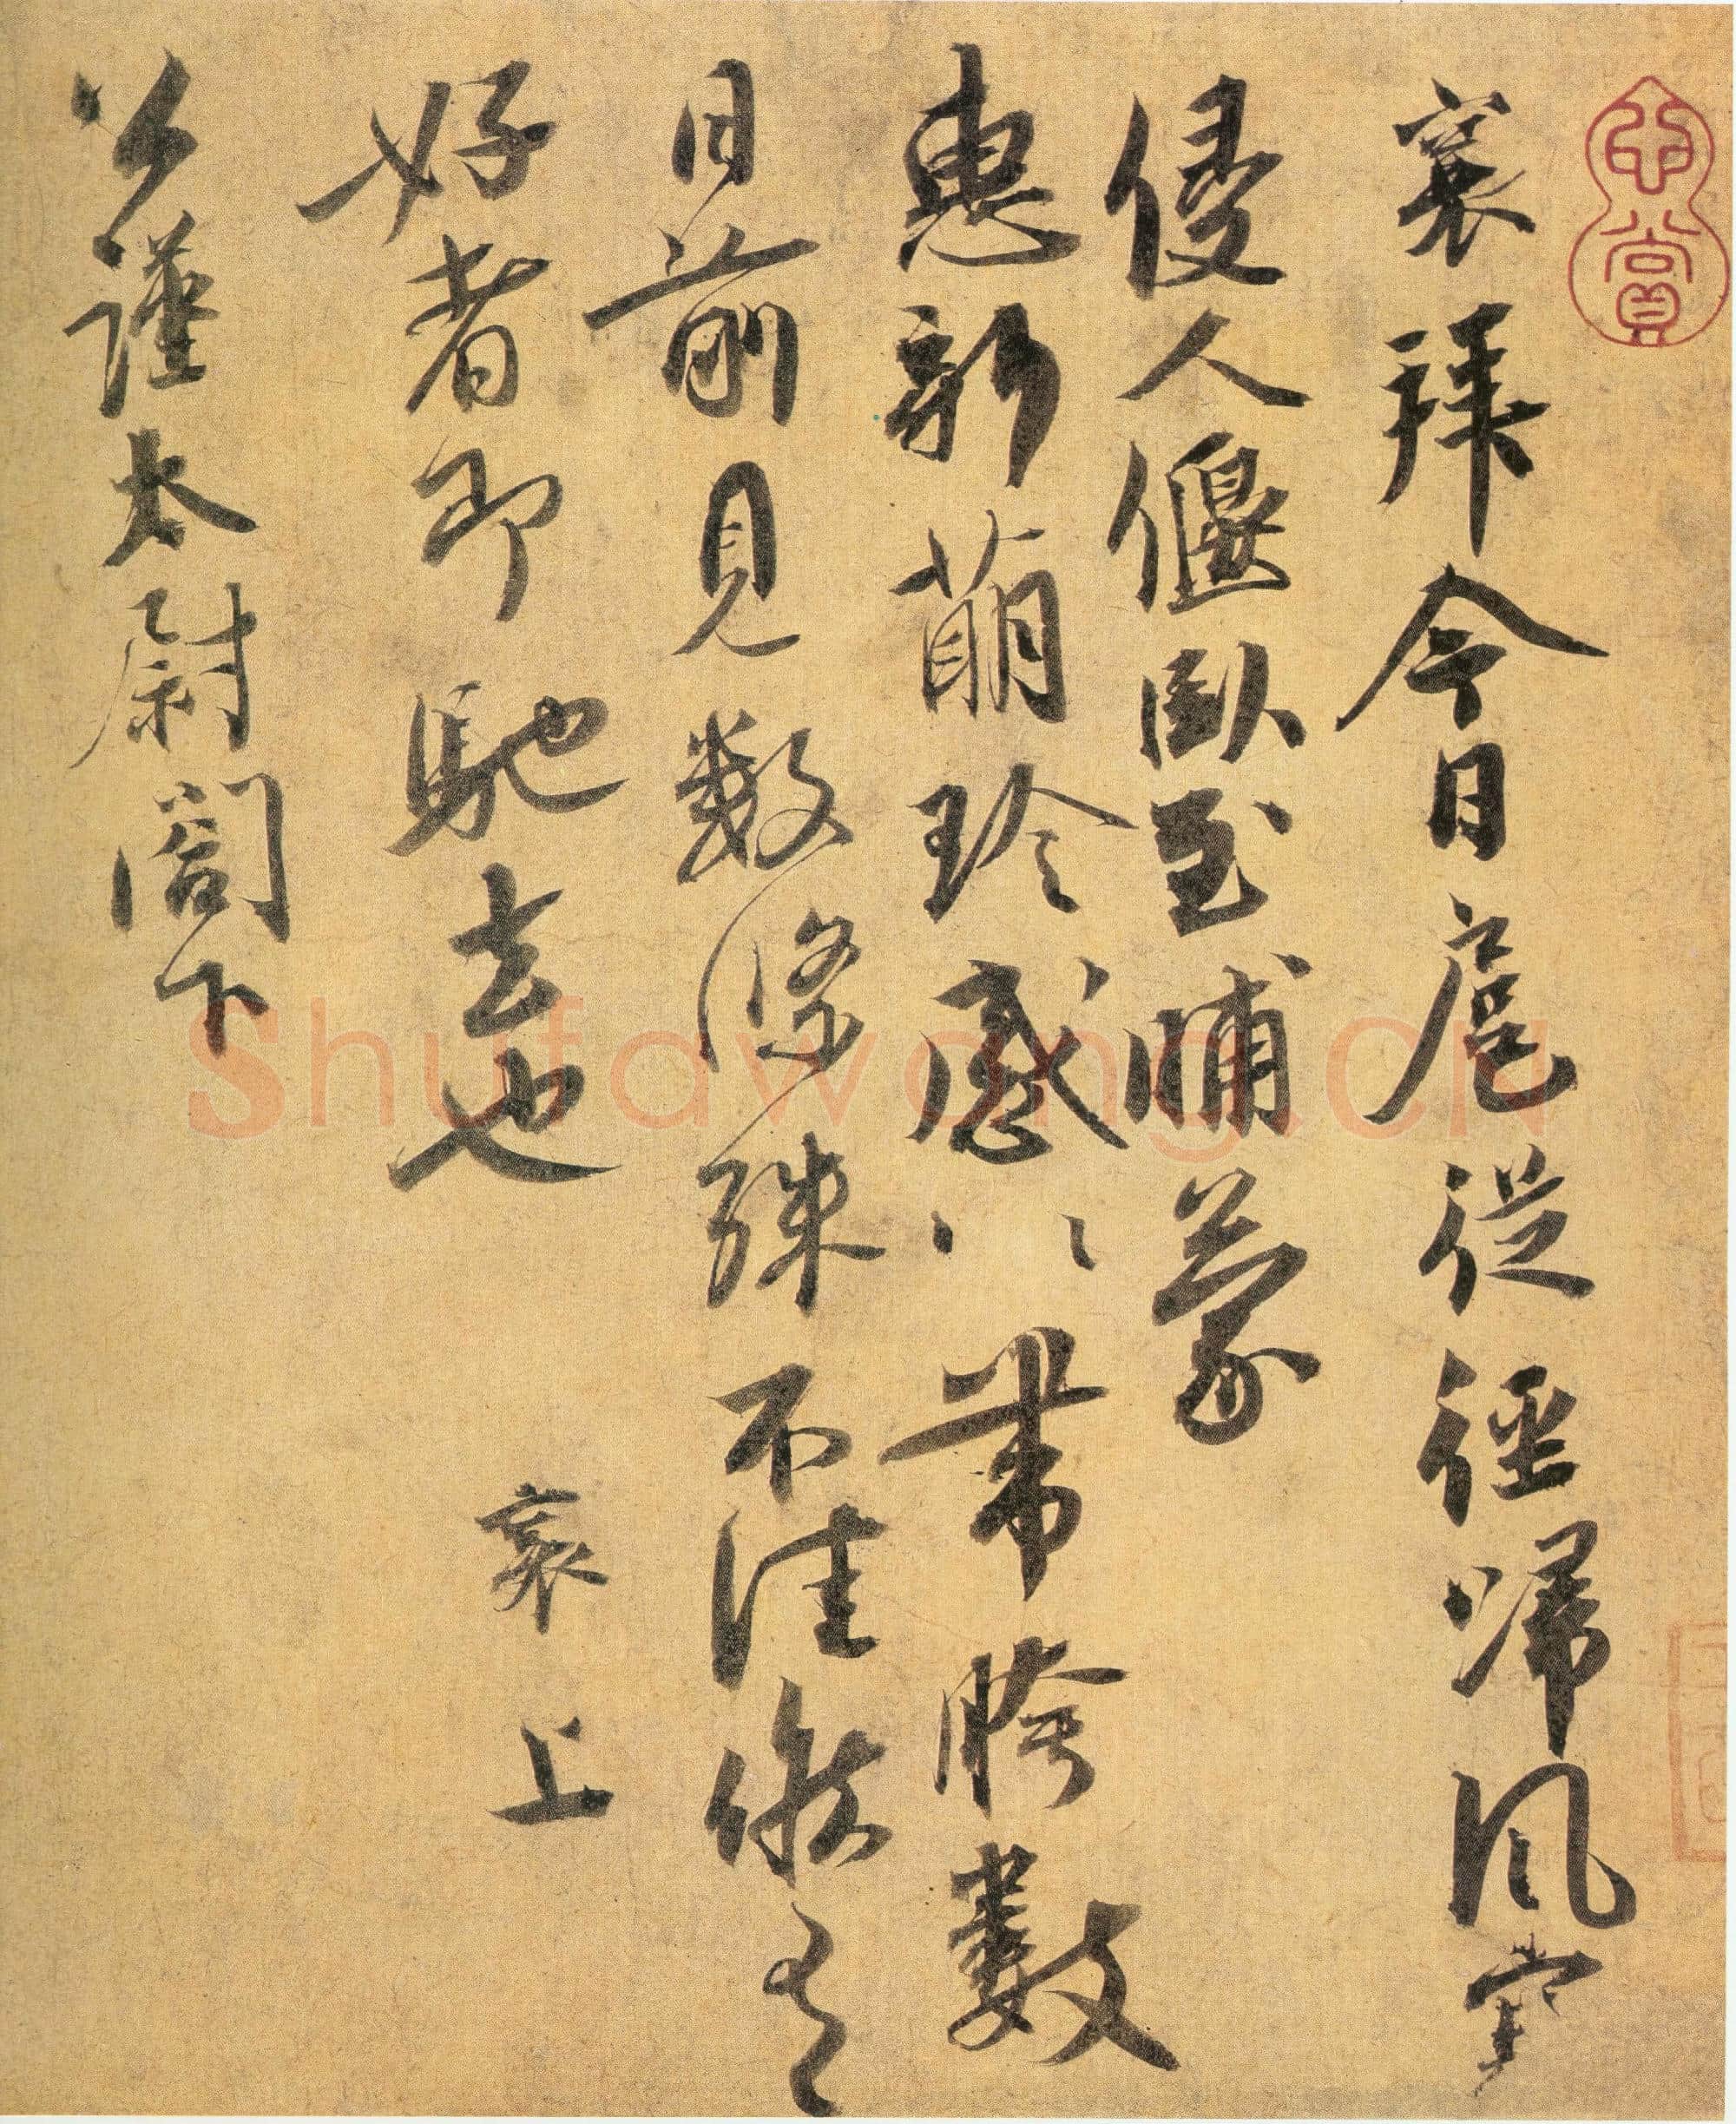 襄拜今日扈從徑歸風寒
侵人偃臥至晡蒙
惠新萌珍感珍感帶胯數
日前見數條殊不佳候有
好者即馳去也
襄上
公謹太尉閣下
Shufawang.cn